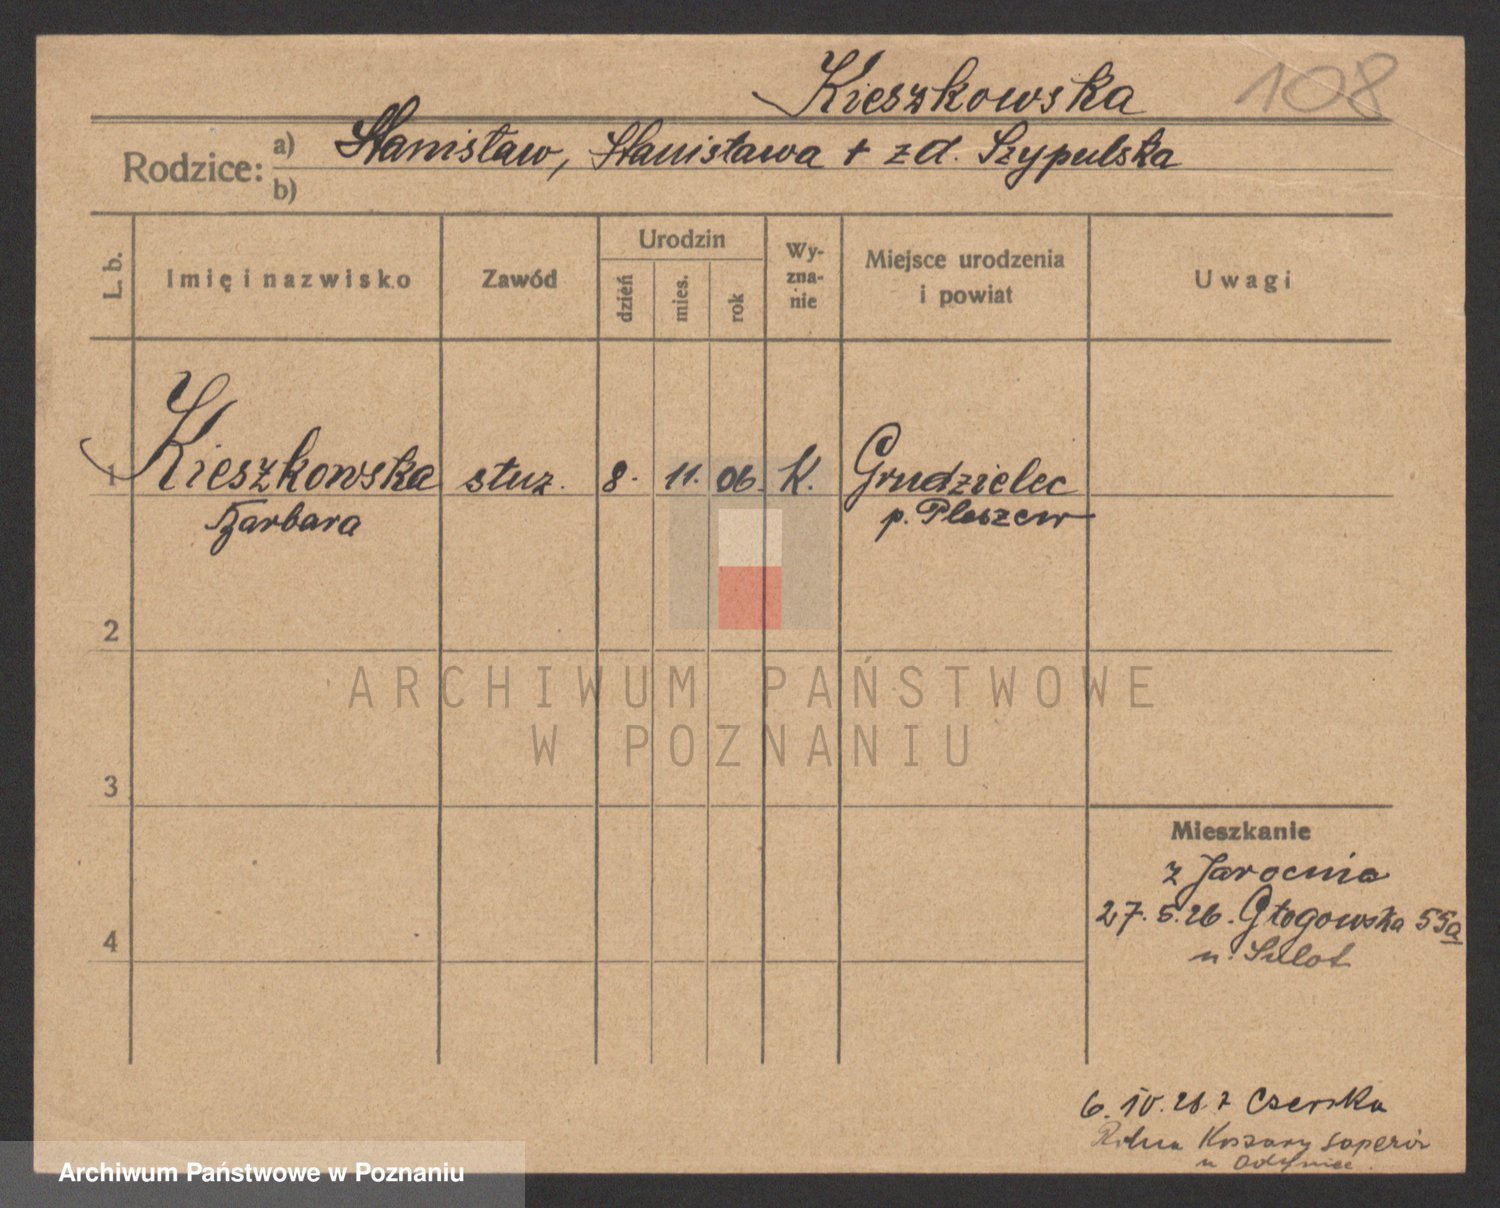 Kieszkowska 108
Rodzice: a) Stanisław, Stanisława + zd. Szypulska
b)
L. b. Imię i nazwisko Zawód Urodzin dzień mies. rok Wy-zna-nie Miejsce urodzenia i powiat Uwagi
1 Kieszkowska służ. 8. 11. 06. K. Grudzielec
Barbara p. Pleszew
2
ARCHIWUM PAŃSTWOWE
W POZNANIU
3
Mieszkanie
z Jarocina
27.5.26. Głogowska 55a
4
u. Szlot
6. IV. 28. z Czerska
Koszary saperów
Archiwum Państwowe w Poznaniu